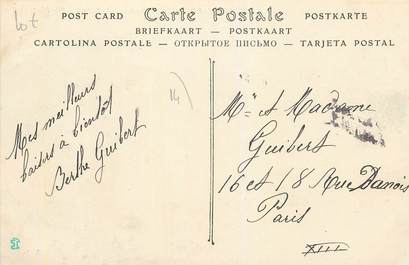 lot
POST CARD Carte Postale POSTKARTE
BRIEFKAART — POSTKAART
CARTOLINA POSTALE — ОТКРЫТОЕ ПИСЬМО — TARJETA POSTAL
14)
Mes meilleurs
baisers à bientot
Berthe Guibert
Mr et Madame
Guibert
16 et 18 Rue Danois
Paris
XIII